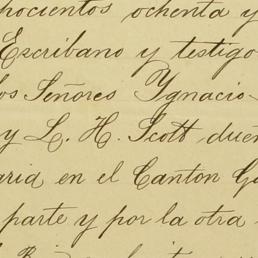 hocientos ochenta y
Escribano y testigo
los Señores Ygnacio
y L. H. Scott duen
aria en el Canton Ga
parte y por la otra